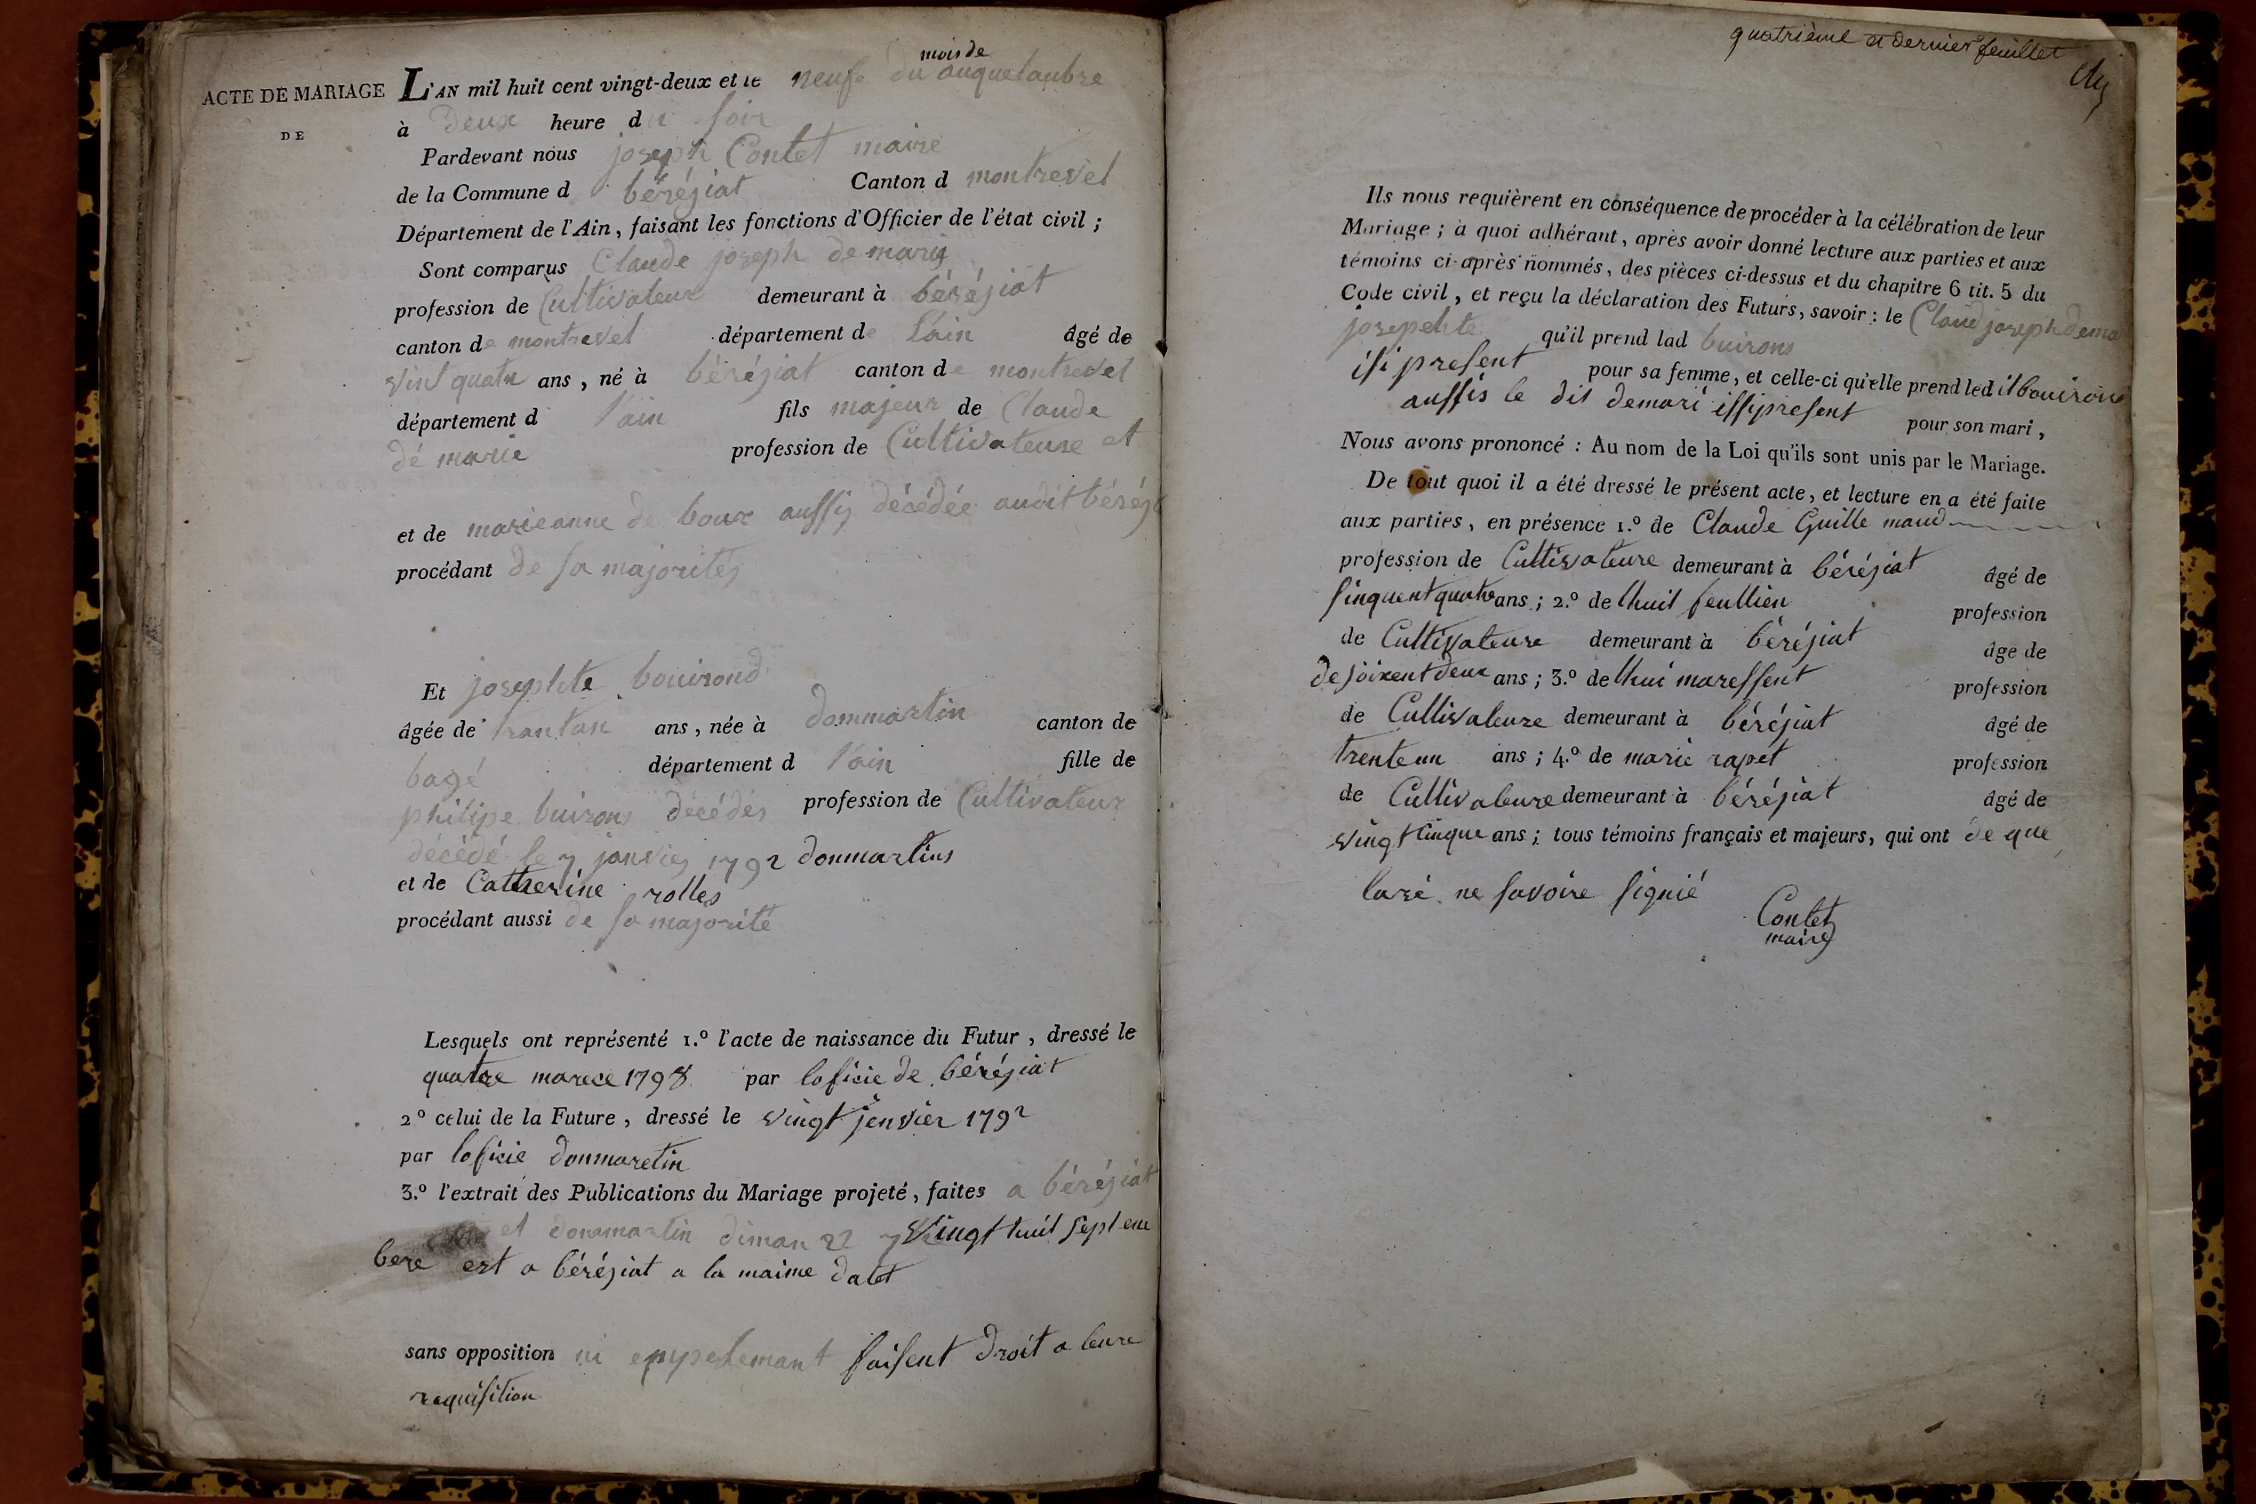 ACTE DE MARIAGE
DE
mois de
L'AN mil huit cent vingt-deux et le neuf du auquetaubre
à deux heure du soir
Pardevant nous joseph Contet maire
de la Commune d béréjiat Canton d montrevel
Département de l'Ain, faisant les fonctions d'Officier de l'état civil;
Sont comparus Claude joseph de marie
profession de Cultivateur demeurant à béréjiat
canton de montrevel département de l'ain âgé de
vint quatre ans, né à béréjiat canton de montrevel
département d l'ain fils majeur de Claude
dé marie profession de Cultivateure et
et de marieanne de boux aussy décédée audit
procédant de sa majorités
Et josephte bouirond
âgée de ans, née à dommartin canton de
bagé département d l'ain fille de
philipe buirons décédés profession de Cultivateur
décédé le 7 janvier 1792 donmartins
et de Catherine rolles
procédant aussi de sa majorité
Lesquels ont représenté 1.º l'acte de naissance du Futur, dressé le
quatre marce 1798 par loficie de béréjiat
2º celui de la Future, dressé le vingt jenvier 1792
par loficie donmaretin
3.º l'extrait des Publications du Mariage projeté, faites a béréjiat
et dommartin diman 22 vingt huit septem
bere est a béréjiat a la maime datet
sans opposition ni empechemant faisent droit a leure
requisition
quatrième et dernier feuillet
Ils nous requièrent en conséquence de procéder à la célébration de leur
Mariage; à quoi adhérant, après avoir donné lecture aux parties et aux
témoins ci-après nommés, des pièces ci-dessus et du chapitre 6 tit. 5 du
Code civil, et reçu la déclaration des Futurs, savoir: le Claud joseph dema
josephte qu'il prend lad buirons
isi present pour sa femme, et celle-ci qu'elle prend led it bouirons
aussis le dit demari issy present pour son mari,
Nous avons prononcé: Au nom de la Loi qu'ils sont unis par le Mariage.
De tout quoi il a été dressé le présent acte, et lecture en a été faite
aux parties, en présence 1.º de Claude Guille maud
profession de Cultivateure demeurant à béréjiat âgé de
sinquent quatre ans; 2.º de lhuit feullien profession
de Cultivateure demeurant à béréjiat âge de
de soixent deux ans; 3.º de lhui maressent profession
de Cultivateure demeurant à béréjiat âgé de
trente un ans; 4.º de marie rapet profession
de Cultivateure demeurant à béréjiat âgé de
vingt cinque ans; tous témoins français et majeurs, qui ont de que
laré ne savoire signié
Contet
maire